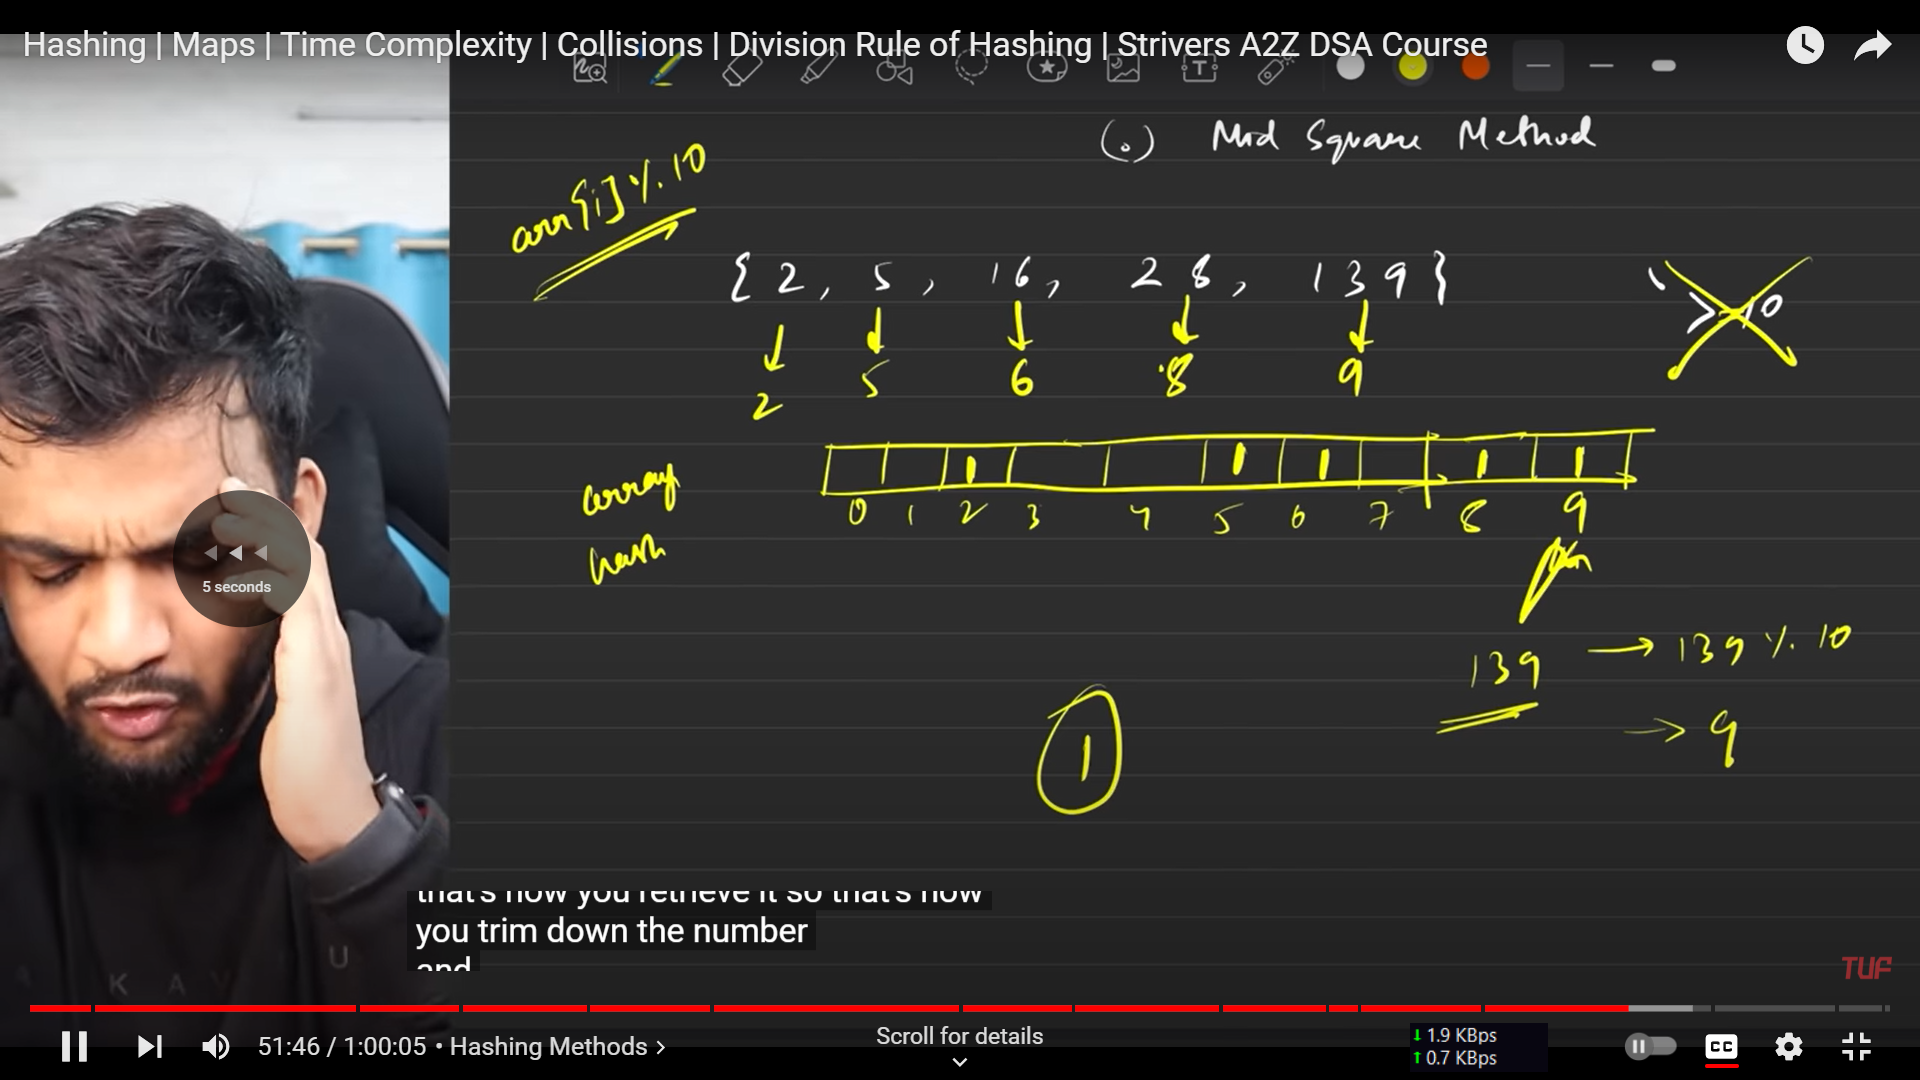 Hashing | Maps | Time Complexity | Collisions | Division Rule of Hashing | Strivers A2Z DSA Course
(.) Mid Square Method
arr[i] % 10
{ 2, 5, 16, 28, 139 }
> 10
2 5 6 8 9
1 1 1 1 1
array
0 1 2 3 4 5 6 7 8 9
hash
5 seconds
139 → 139 % 10
→ 9
1
that's how you retrieve it so that's how
you trim down the number
and
U
K A
TUF
51:46 / 1:00:05 • Hashing Methods >
Scroll for details
1.9 KBps
0.7 KBps
CC